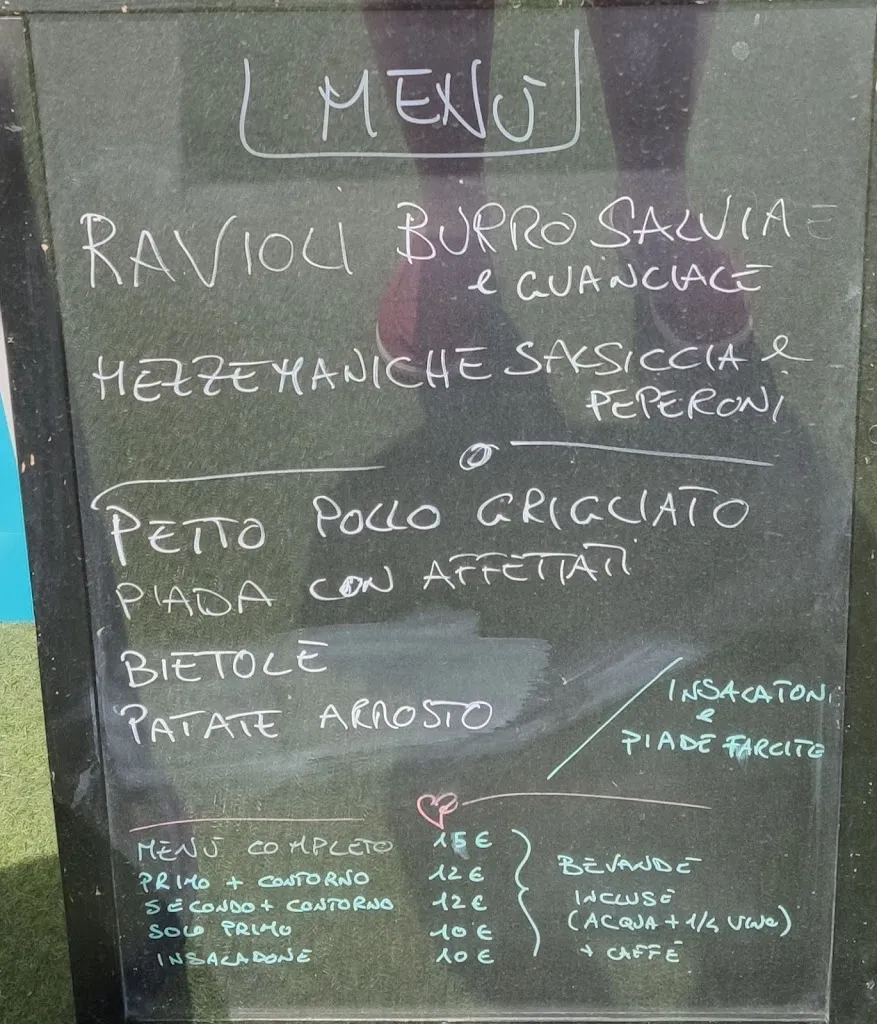 MENÙ
RAVIOLI BURRO SALVIA
e GUANCIALE
MEZZEMANICHE SALSICCIA e
PEPERONI
PETTO POLLO GRIGLIATO
PIADA CON AFFETTATI
BIETOLE
PATATE ARROSTO
INSALATONI
e
PIADE FARCITE
MENÙ COMPLETO 15 €
PRIMO + CONTORNO 12 €
SECONDO + CONTORNO 12 €
SOLO PRIMO 10 €
INSALADONE 10 €
BEVANDE
INCLUSE
(ACQUA + 1/4 VINO)
+ CAFFÈ